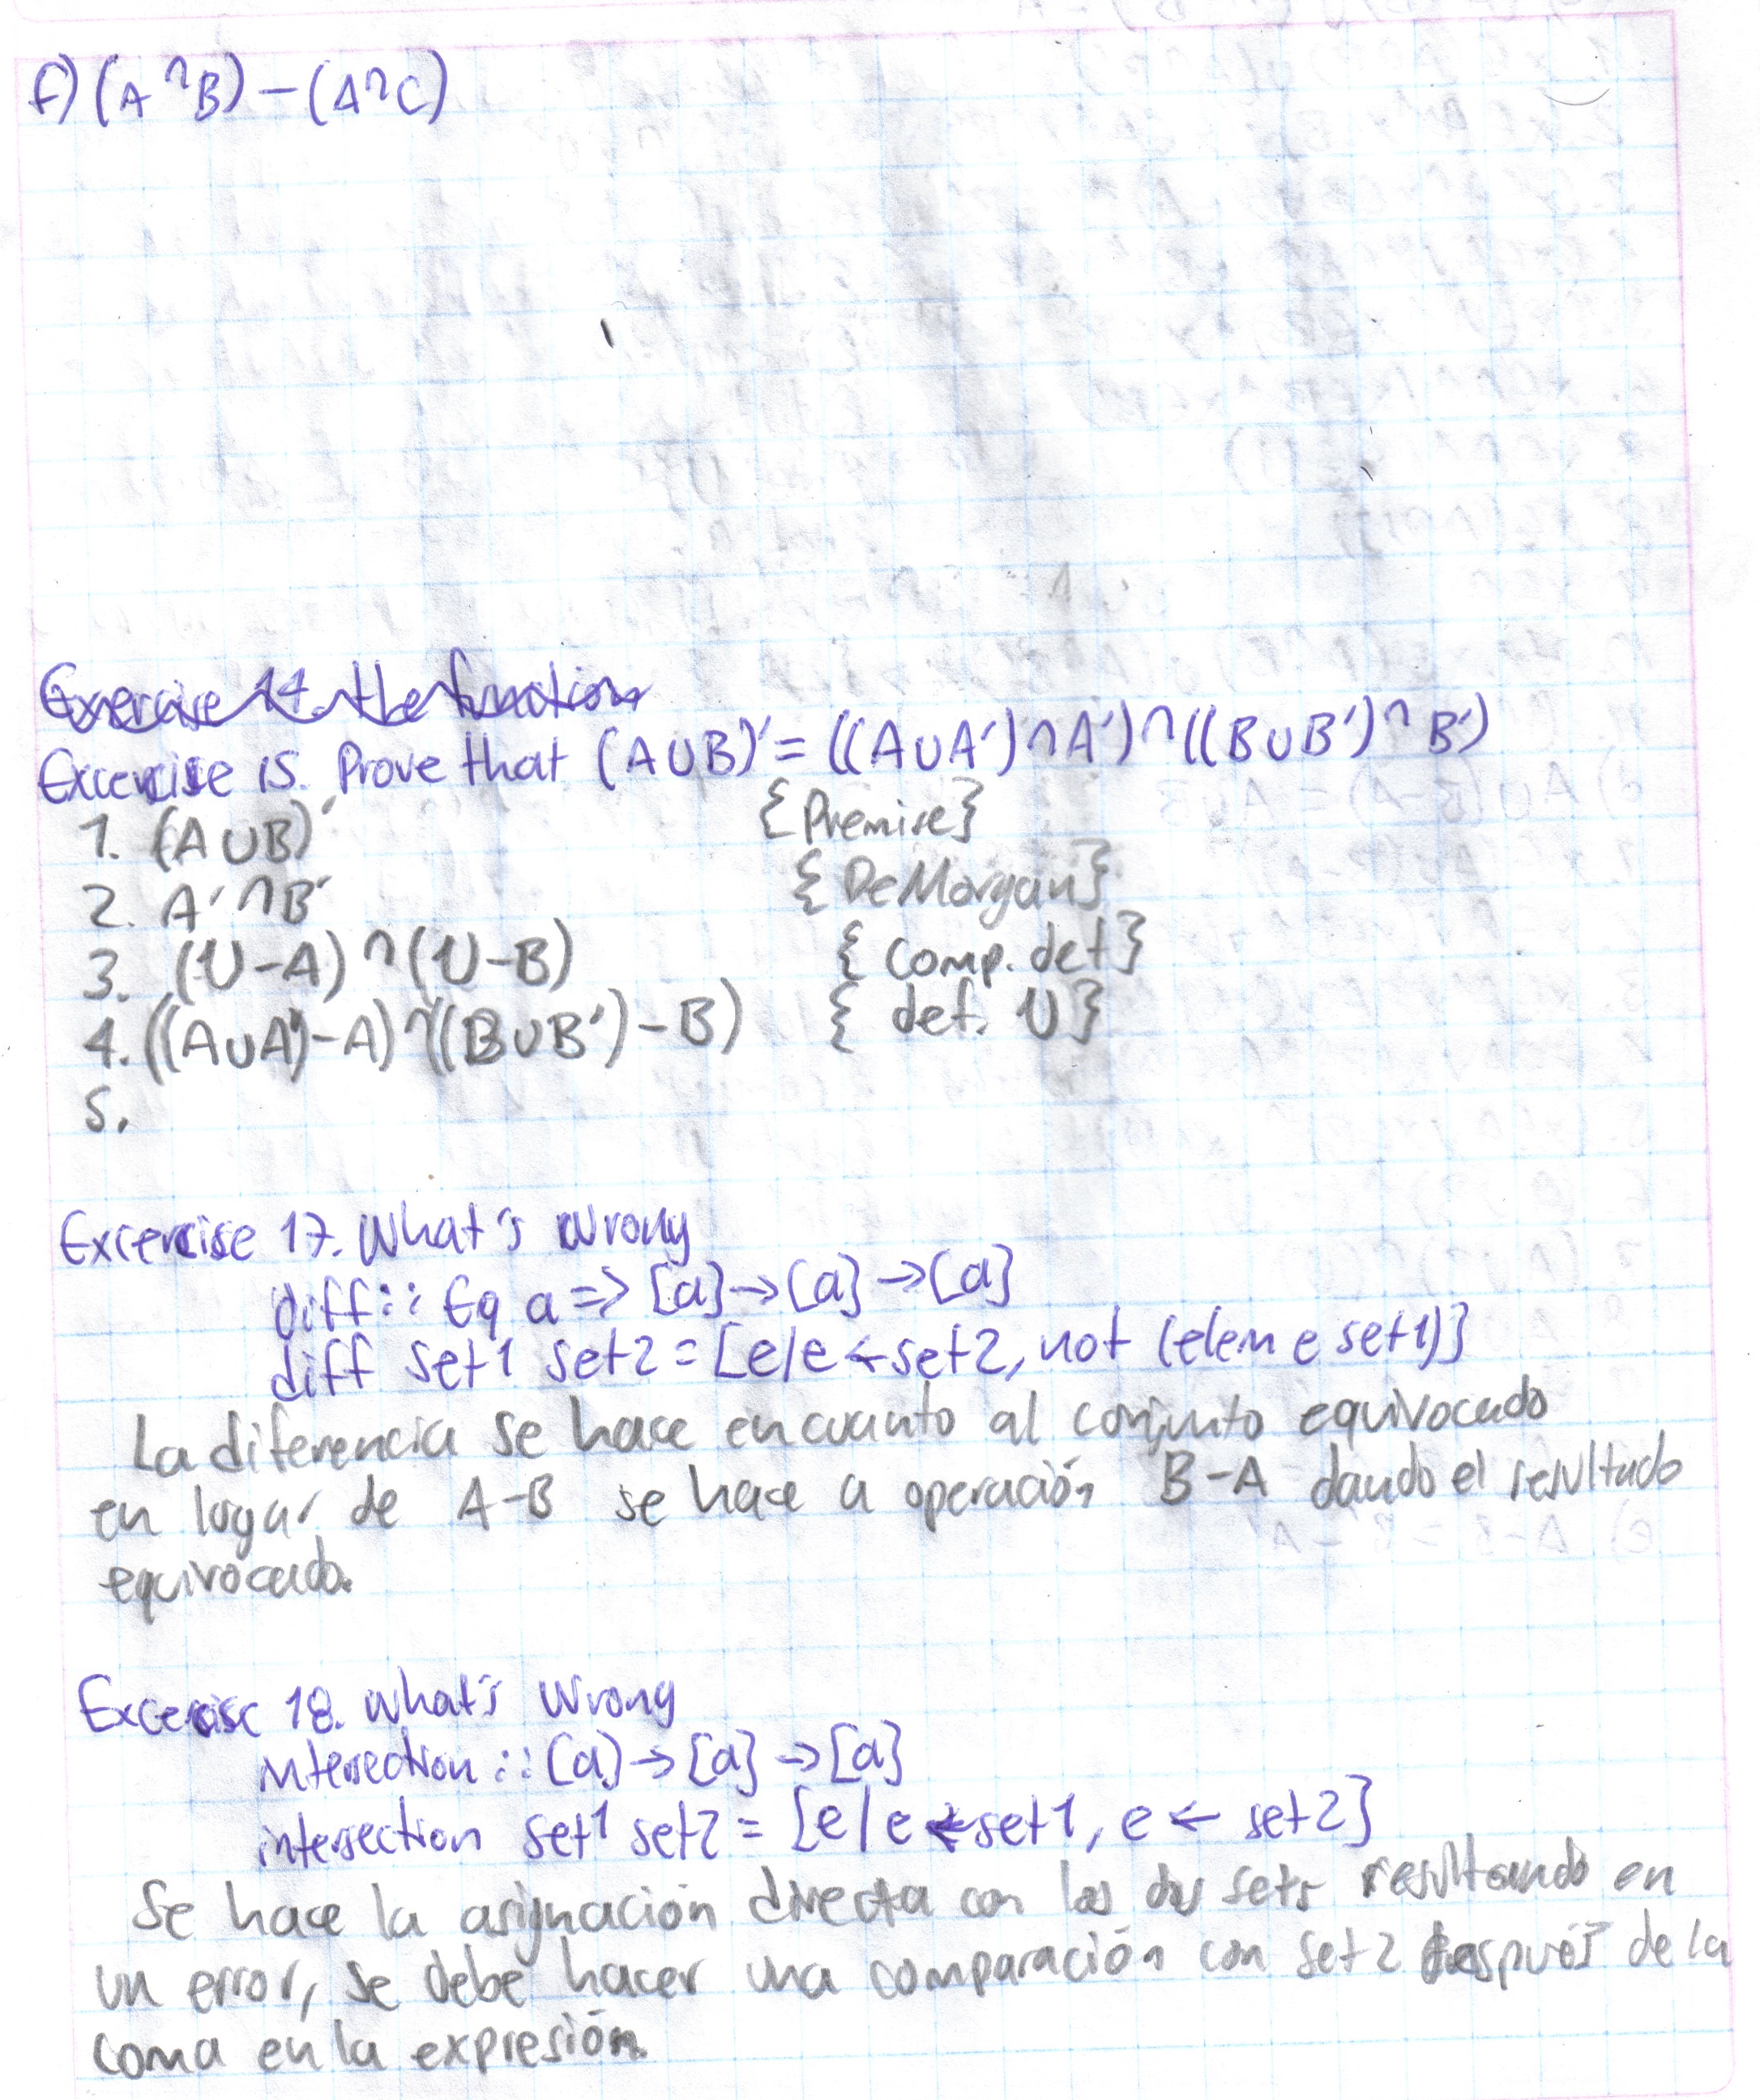 f) (A∩B) - (A∩C)
Exercise 14. the function
Excercise 15. Prove that (A∪B)' = ((A∪A')∩A')∩((B∪B')∩B')
1. (A∪B)' {Premise}
2. A'∩B' {DeMorgan}
3. (U-A)∩(U-B) {Comp. def}
4. ((A∪A')-A)∩((B∪B')-B) {def. U}
5.
Excercise 17. What's Wrong
diff:: Eq a => [a]→[a]→[a]
diff set1 set2 = [e|e←set2, not (elem e set1)]
La diferencia se hace en cuanto al conjunto equivocado
en lugar de A-B se hace a operación B-A dando el resultado
equivocado.
Excercise 18. What's Wrong
intersection :: [a]→[a]→[a]
intersection set1 set2 = [e|e←set1, e ← set2]
Se hace la asignación directa con los dos sets resultando en
un error, se debe hacer una comparación con set2 despues de la
coma en la expresión.